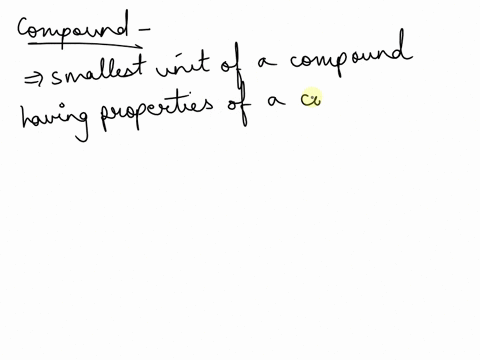 Compound -
⇒ smallest unit of a compound
having properties of a co